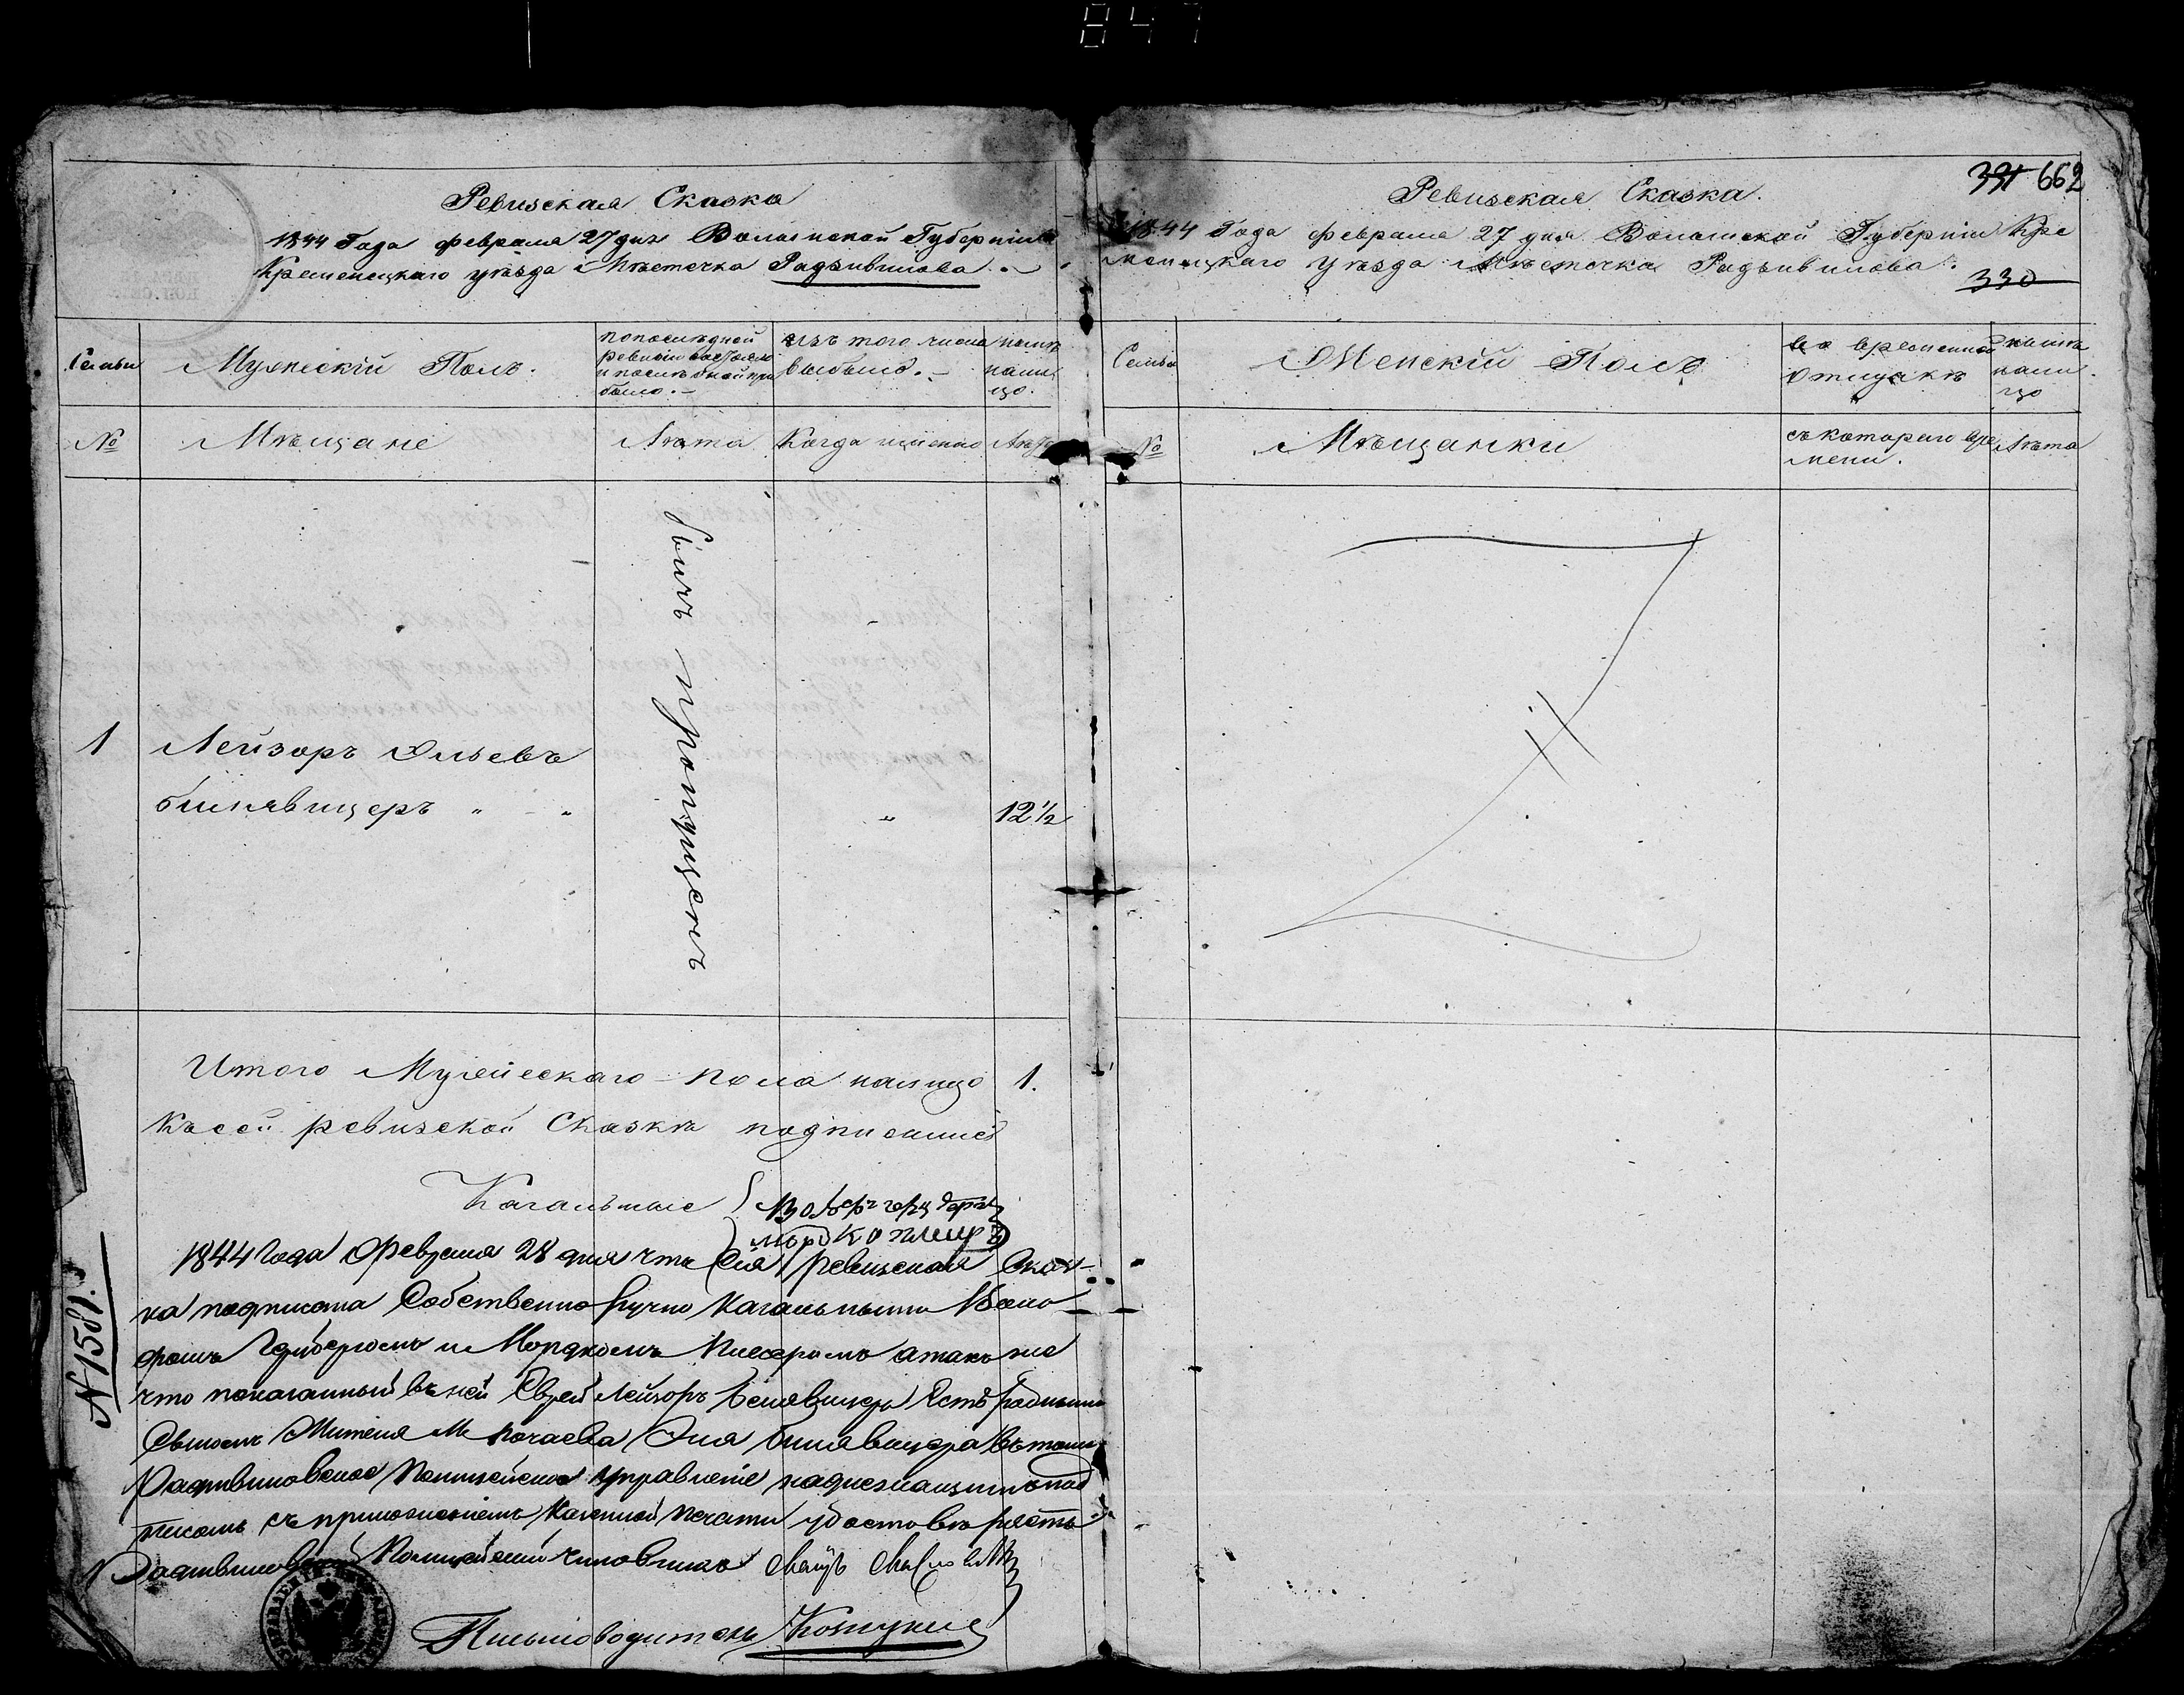 847
Ревизская Сказка
1844 Года февраля 27 дня Волынской Губернии
Кременецкаго уѣзда Мѣстечка Радзивилова
Семьи
Мужескій Полъ.
по послѣдней
ревизіи состояло
и послѣ оной при
было.
изъ того числа
выбыло.
нынѣ
нали
цо.
№
Мѣщане
Лѣта
Когда именно
Лѣта
былъ пропущенъ
1
Лейзоръ Эльевъ
билявщеръ " - "
"
12½
Итого Мужескаго пола налицо 1.
Къ сей ревизской Сказкѣ подписались
Кагальные
1844 Года Февраля 28 дня что Сія ревизская Сказ-
ка подписана Собственно ручно Кагальными Воль
фомъ и Мордкомъ атакъ же
что показанный въ ней Еврей Лейзоръ Есть роднымъ
Сыномъ Жителя М Почаева Эля билявщера въ томъ
Радзивиловское Полицейское Управленіе надлежащимъ под
писомъ съ приложеніемъ Казенной печати удостовѣряетъ
Радзивиловский Полицейский чиновникъ
Письмоводитель
№ 1581.
331 662
Ревизская Сказка.
1844 Года февраля 27 дня Волынской Губерніи Кре
менецкаго Уѣзда Мѣстечка Радзивилова.
330
Семьи
Женскій Полъ
во временной
отлучкѣ
нынѣ
нали
цо
№
Мѣщанки
съ котораго вре
мени.
Лѣта